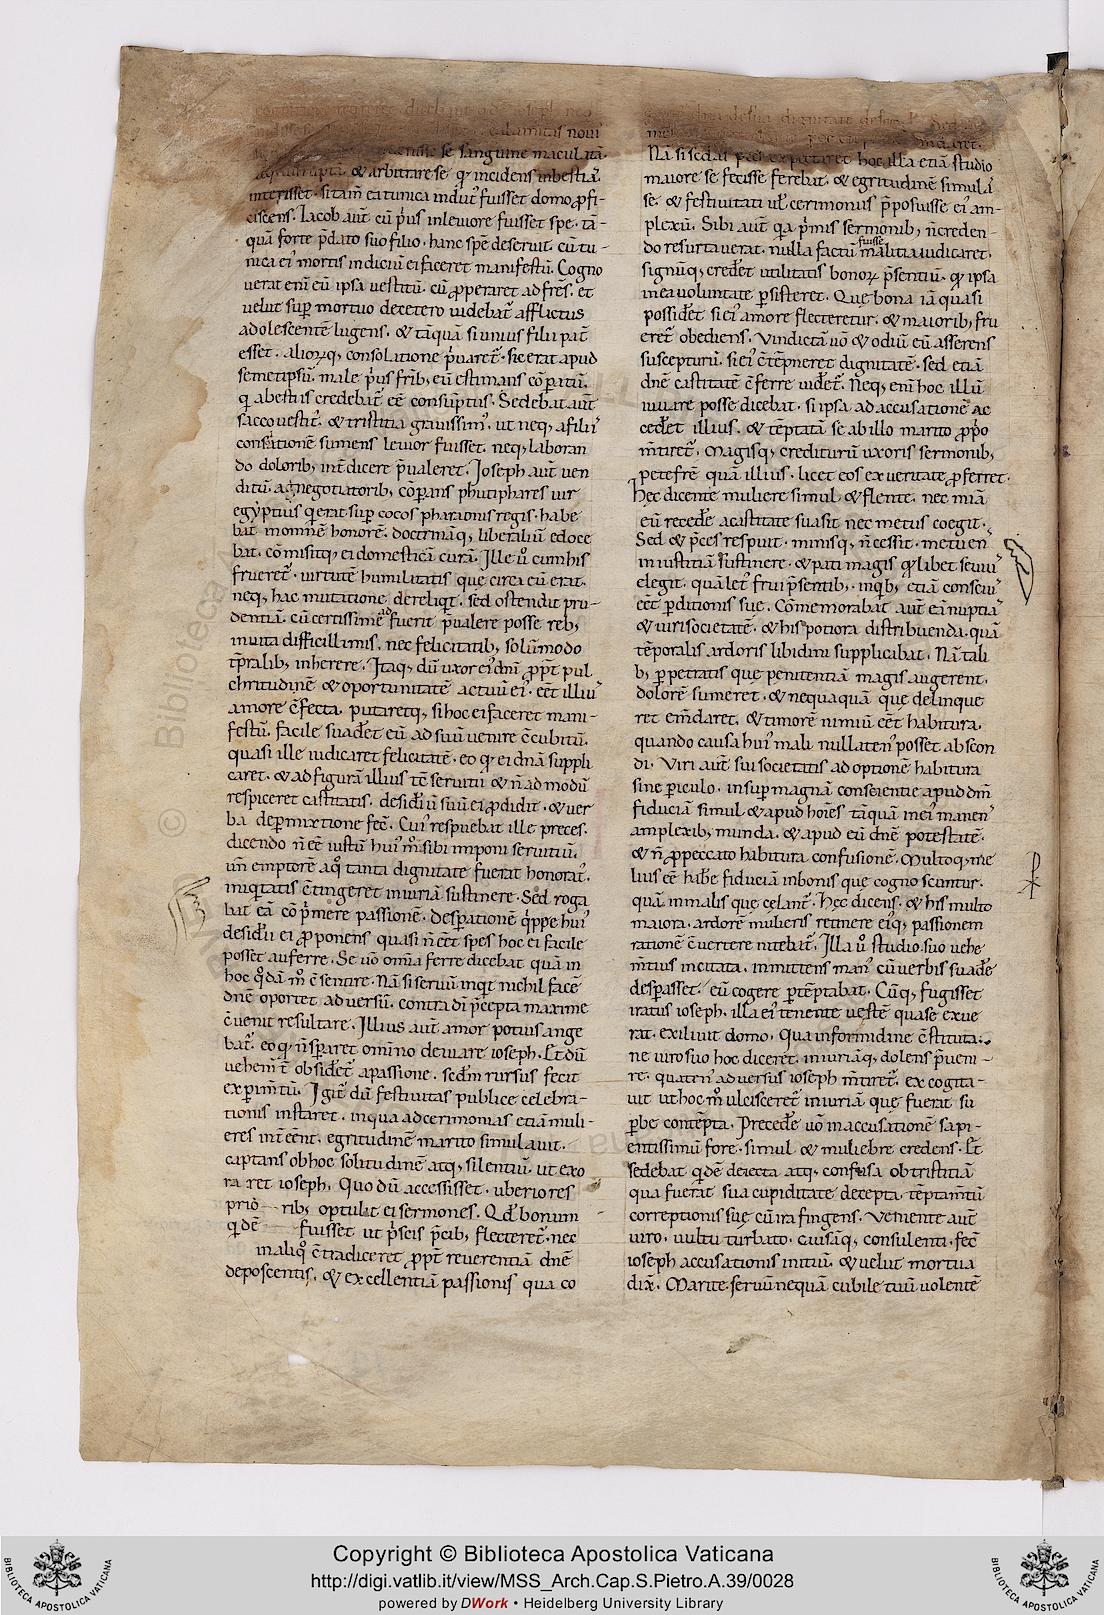 calamitas noui
se sanguine maculatā
& arbitrare se qͥ incidens inbestiā
interisset. si tam̄ ea tunica indut' fuisset domo ꝓfi
ciscens. Iacob aūt cū pͥus inleuiore fuisset spe. tā-
quā forte p̄dato suo filio. hanc spē deseruit. cū tu-
nica ei' mortis indiciū ei faceret manifestū. Cogno
uerat eni eū ipsa uestitū. cū ꝓperaret ad fr̄es. et
uelut suꝑ mortuo decetero uidebat' afflictus
adolescentē lugens. & tāquā si unius filii pat̄
esset. alioꝝq; consolatione p̄uaret'. sic erat apud
semetipsū. male pͥus frīb; eū estimans cōparatū.
qͥ abestiis credebat' eē consūptus. Sedebat aūt
sacco uestit'. & tristitia grauissim'. ut neq; afiliis
consͣtionē sumens leuior fuisset. neq; laboran
do dolorib; int̄dicere p̄ualeret. Ioseph aūt uen
ditū anegotiatorib; cōparans phutiphares uir
egyptius qͥ erat suꝑ cocos pharaonis regis. habe
bat inomnē honorē. doctrinaq; liberaliū edoce
bat. cōmisitq; ei domesticā curā. Ille ů cum his
frueret'. uirtutē humilitatis que circa eū erat.
neq; hac mutatione dereliqͥt. sed ostendit pru-
dentiā. cū certissime adfuerit p̄ualere posse reb;
inuita difficillimis. nec felicitatib; solūmodo
tp̄ralib; inherere. Itaq; dū uxor ei' dn̄i ꝓpt̄ pul
chritudinē & oportunitatē actuū ei'. eēt illi'
amore c̄fecta. putaretq; si hoc ei faceret mani-
festū. facile suadēt eū ad suū uenire c̄cubitū.
quasi ille iudicaret felicitatē. eo qͥ ei dn̄a suppli
caret. & ad figurā illius tē seruitii & n̄ ad modū
respiceret castitatis. desid̄iū suū ei ꝓdidit. & uer
ba deꝑmixtione fec̄. Cui' respuebat ille preces.
dicendo n̄ eē iustū hui' mͦi sibi imponi seruitiū.
uñ emptorē aqͦ tanta dignitate fuerat honorat'.
iniqͥtatis c̄tingeret iniuriā sustinere. Sed roga
bat eā cōp̄mere passionē. desꝑationē qͥppe hui'
desid̄ii ei ꝓponens quasi n̄ eēt spes hoc ei facile
posset auferre. Se uō om̄ia ferre dicebat quā in
hoc qͦdā mͦ c̄sentire. Nā si seruū inqͥt nichil facē
dn̄ē oportet aduersū. contra dn̄i p̄cepta maxime
c̄uenit resultare. Illius aūt amor potius ange
bat'. eo qͥ n̄ sꝑaret omīno deuiare ioseph. Et dū
uehem̄t' obsidet' apassione. sed̄m rursus fecit
exꝑim̄tū. Igit' dū festiuitas publice celebra-
tionis instaret. inqua ad cerimonias etiā muli-
eres int̄eēnt. egritudinē marito simulauit.
captans ob hoc solitudinē atq; silentiū. ut exo
raret ioseph. Quo dū accessisset. uberiores
priō ribꝫ optulit ei sermones. Qd̄ bonum
qͥdē fuisset ut p̄seis p̄cib; flecteret'. nec
inaliqͦ c̄tradiceret ꝓpt̄ reuerentiā dn̄ē
deposcentis. & excellentiā passionis qua co
desua dignitate Sed
Nā si sed̄as p̄ces expectaret hoc illa etiā studio
maiore se fecisse ferebat. & egritudinē simulās
se. & festiuitati ul' cerimoniis p̄posuisse ei' am-
plexū. Sibi aūt qͣ pͥmis sermonib; n̄ creden-
do resurtauerat. nulla factū fuisse malitia iudicaret.
signūq; cred̄et utilitatis bonoꝝ p̄sentiū. qͥ ipsa
inea uoluntate ꝑsisteret. Que bona iā quasi
possid̄et si ei' amore flecteretur. & maiorib; fru
eret' obediens. Vindictā uō & odiū eū asserens
suscepturū. si ei' c̄tēpneret dignitatē. sed etiā
dn̄ē castitatē c̄ferre uid̄et. Neq; eni hoc illū
iuuare posse dicebat. si ipsa ad accusationē ac
ced̄et illius. & tēptatā se ab illo marito ꝓpͦo
m̄tiret'. Magisq; crediturū uxoris sermonib;
petefrē quā illius. licet eos exueritate ꝓferret.
Hęc dicente muliere simul & flente. nec miā
eū reced̄e acastitate suasit nec metus coegit.
Sed & p̄ces respuit. minisq; n̄ cessit. metuens
iniustitiā sustinere. & pati magis qͥlibet seuiū
elegit. quā let' frui p̄sentib;. inqͥb; etiā consciu'
eēt ꝑditionis sue. Cōmemorabat aūt eā nuptias
& uiri societatē. & his potiora distribuenda. quā
tēporalis ardoris libidini supplicabat. Nā tali
b; ꝑpetratis que penitentiā magis augerent.
dolorē sumeret. & nequaquā que delinque
ret em̄daret. & timorē nimiū eēt habitura.
quando causa hui' mali nullaten' posset abscon
di. Viri aūt sui societatis ad optionē habitura
sine ꝑiculo. insuꝑ magnā conscientie apud dn̄m
fiduciā simul & apud hoīes tāquā inei' manens
amplexib; munda. & apud eū dn̄ē potestatē.
& n̄ ꝓ peccato habitura confusionē. Multoq; me
lius eē habe fiduciā inbonis que cognoscuntur.
quā inmalis que celant'. Hęc dicens. & his multo
maiora. ardorē mulieris retinere ei'q; passionem
rationē c̄uertere nitebat'. Illa ů studio suo uehe
m̄tius incitata. inmittens man' cū uerbis suad̄e
desꝑasset. eū cogere ꝑtēptabat. Cūq; fugisset
iratus ioseph. illa ei' tenente uestē quase exue
rat. exiliuit domo. Qua informidine c̄stituta.
ne uiro suo hoc diceret. iniuriāq; dolens p̄ueni-
re. quaten' aduersus ioseph m̄tiret'. excogita-
uit ut hoc mͦ ulcisceret' iniuriā que fuerat su
ꝑbe contēpta. Preced̄e uō inaccusationē sapi-
entissimū fore. simul & muliebre credens. Et
sedebat qͥdē deiecta atq; confusa ob tristitiā
qua fuerat sua cupiditate decepta. tēptam̄tū
correptionis sue cū ira fingens. Veniente aūt
uiro. uultu turbato. causāq; consulenti. fec̄
ioseph accusationis initiū. & uelut mortua
dix̄. Marite. seruū nequā cubile tuū uolentē
© Biblioteca
Copyright © Biblioteca Apostolica Vaticana
http://digi.vatlib.it/view/MSS_Arch.Cap.S.Pietro.A.39/0028
powered by DWork • Heidelberg University Library
BIBLIOTECA APOSTOLICA VATICANA
BIBLIOTECA APOSTOLICA VATICANA